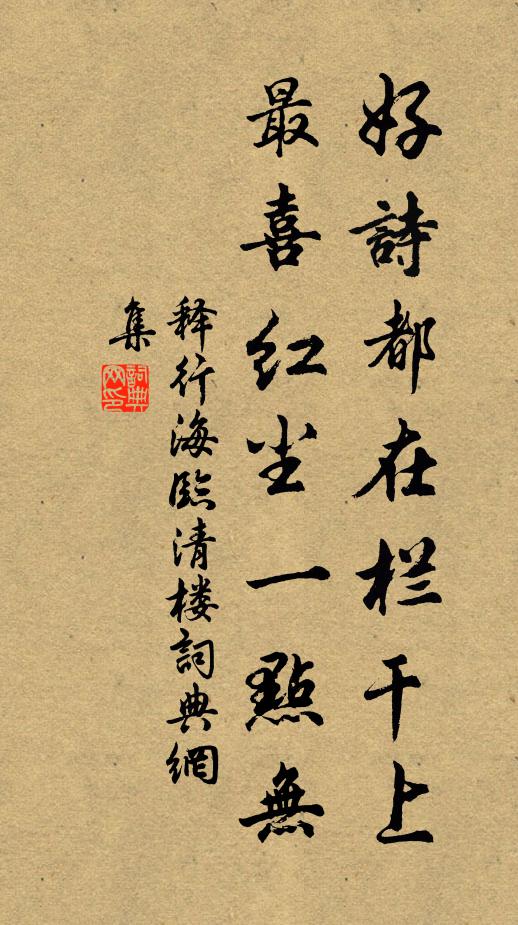 好詩都在栏干上
最喜红尘一點無
释行海臨清楼詞典網
集
詞典网印